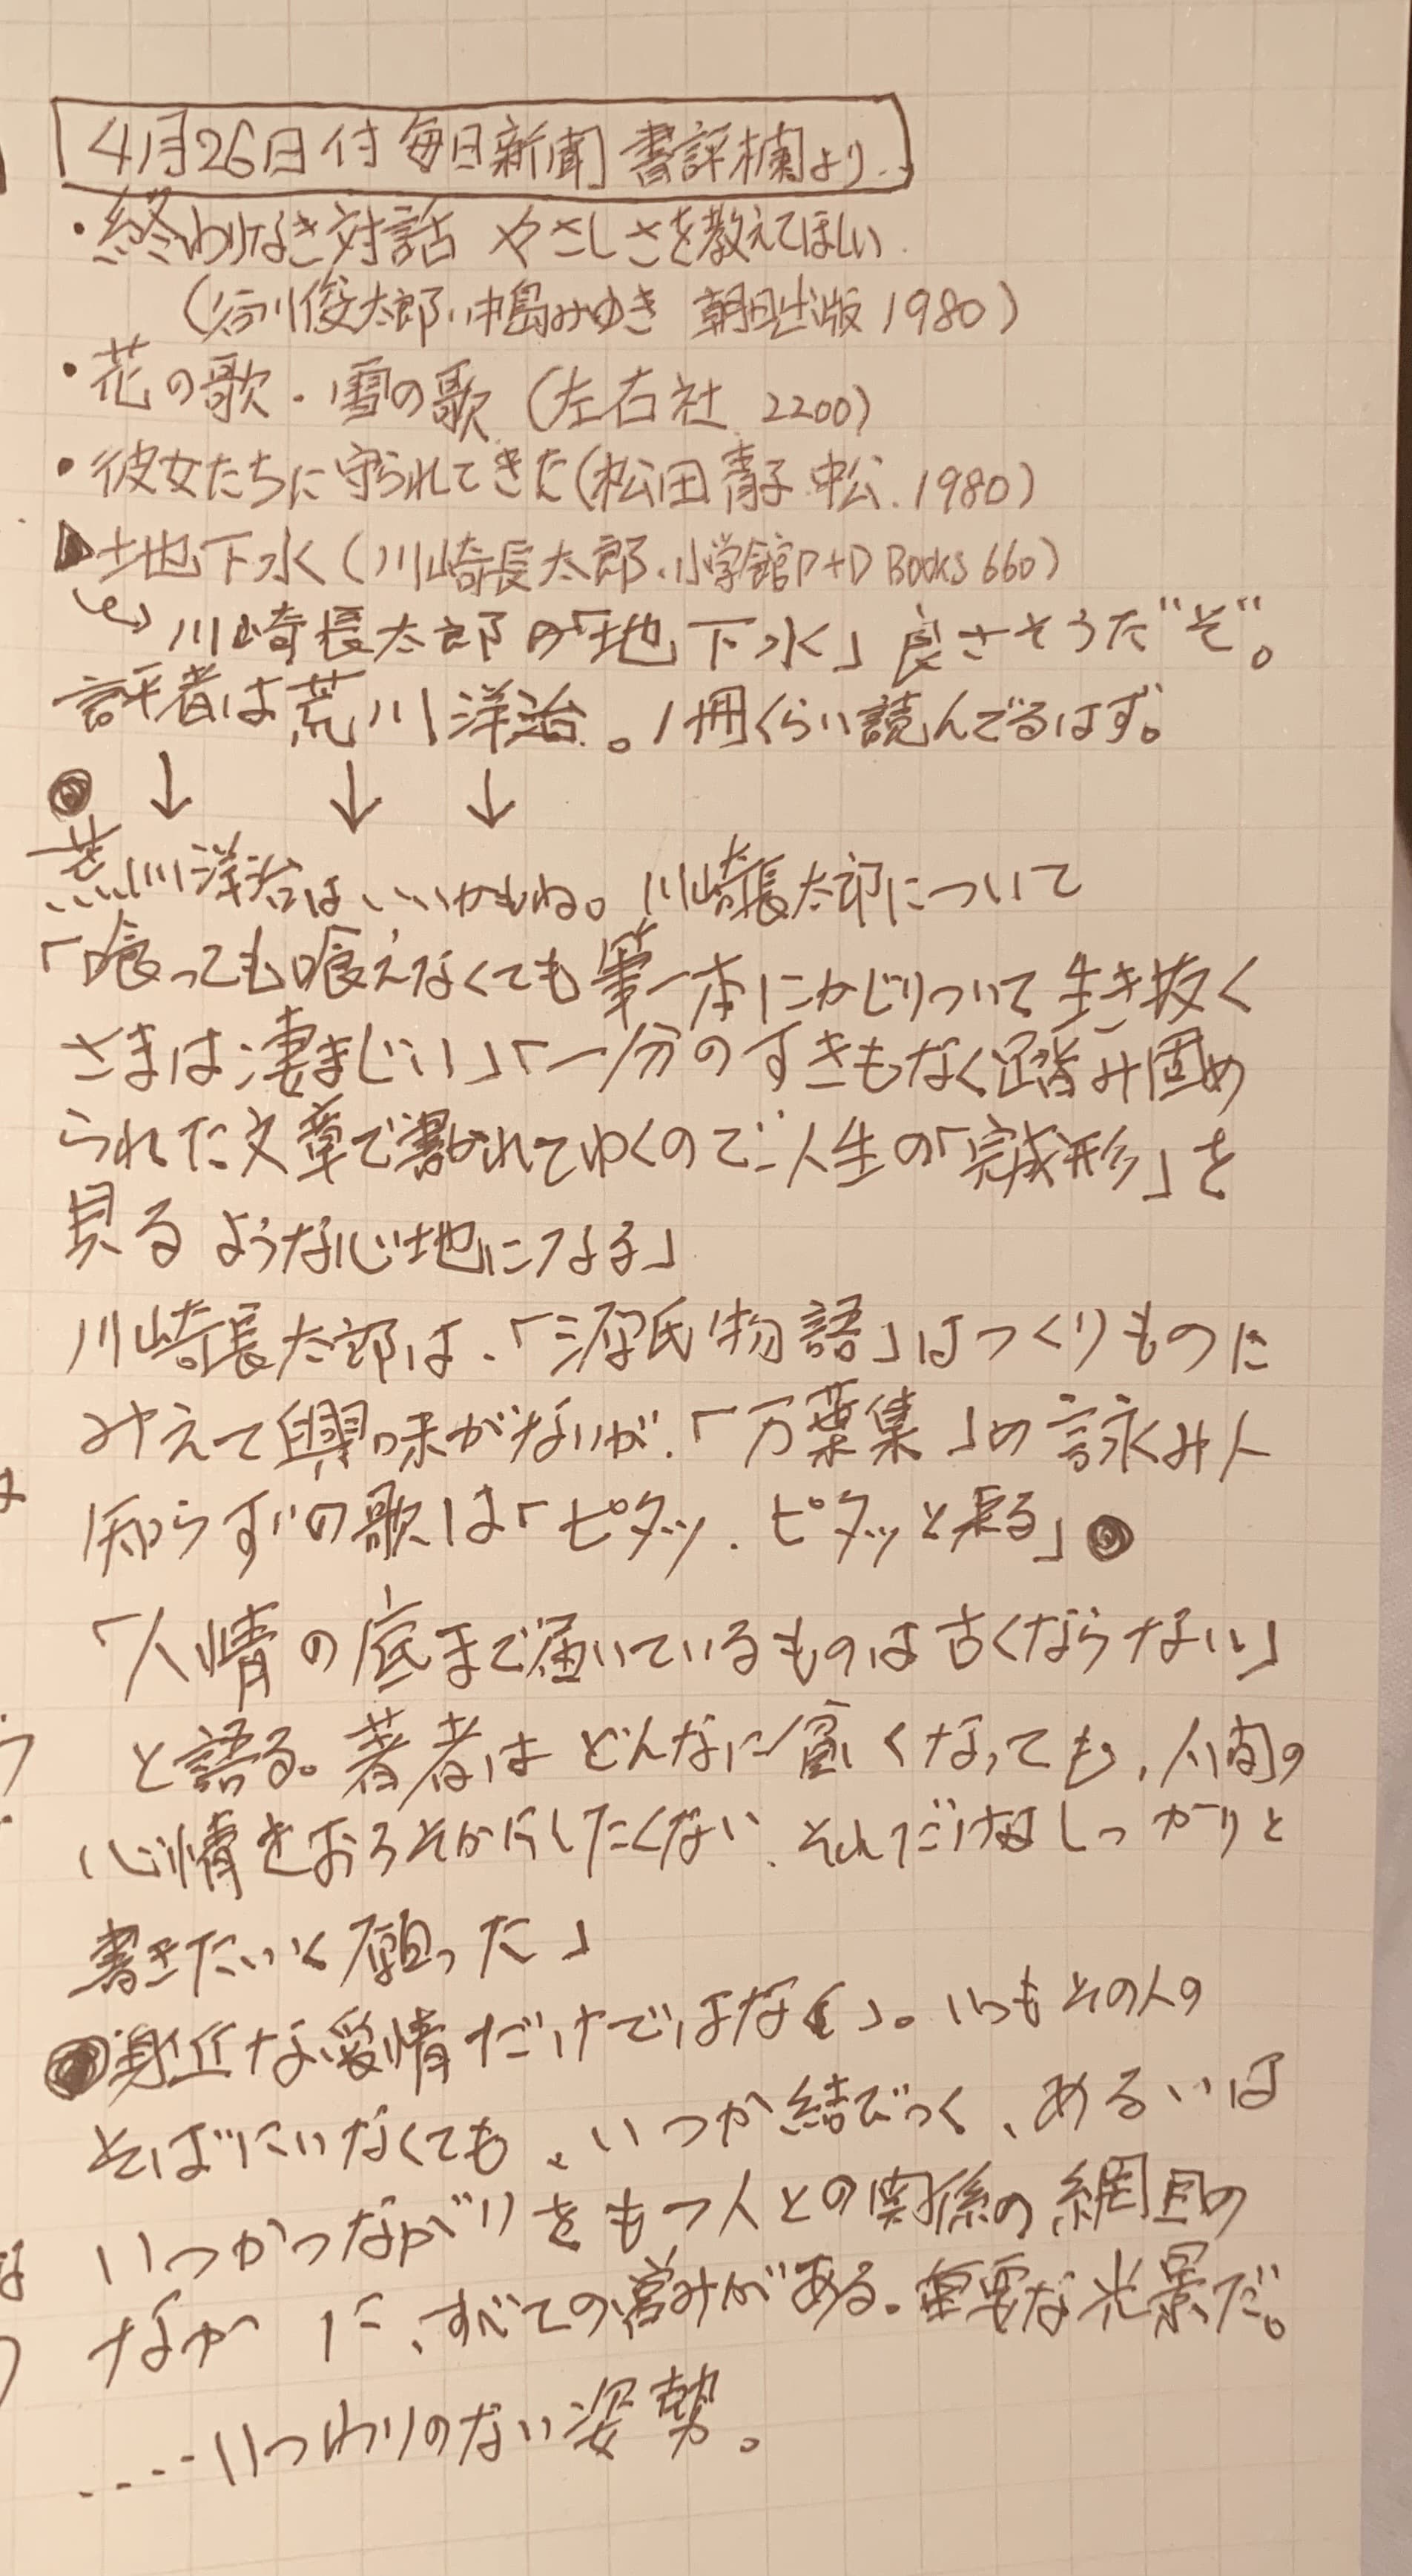 4月26日付 毎日新聞 書評欄より..
・終わりなき対話 やさしさを教えてほしい
(谷川俊太郎、中島みゆき 朝日出版 1980)
・花の歌・雪の歌 (左右社 2200)
・彼女たちに守られてきた(松田青子 中公. 1980)
▶地下水(川崎長太郎.小学館P+D Books 660)
↪川崎長太郎の「地下水」良さそうだぞ。
評者は荒川洋治。1冊くらい読んでるはず。
◎ ↓ ↓ ↓
荒川洋治はいいかもね。川崎長太郎について
「喰っても喰えなくても筆一本にかじりついて生き抜く
さまは凄まじい」「一分のすきもなく踏み固め
られた文章で書かれてゆくので人生の「完成形」を
見るような心地になる」
川崎長太郎は、「源氏物語」はつくりものに
みえて興味がないが、「万葉集」の詠み人
知らずの歌は「ピタッ、ピタッと来る」◎
「人情の底まで届いているものは古くならない」
と語る。著者はどんなに貧しくなっても、人間の
心情をおろそかにしたくない、それだけはしっかりと
書きたいと願った」
●身近な愛情だけではなく」。いつもその人の
そばにいなくても、いつか結びつく、あるいは
いつかつながりをもつ人との関係の網目の
なかに、すべての営みがある。重要な光景だ。
....いつわりのない姿勢。